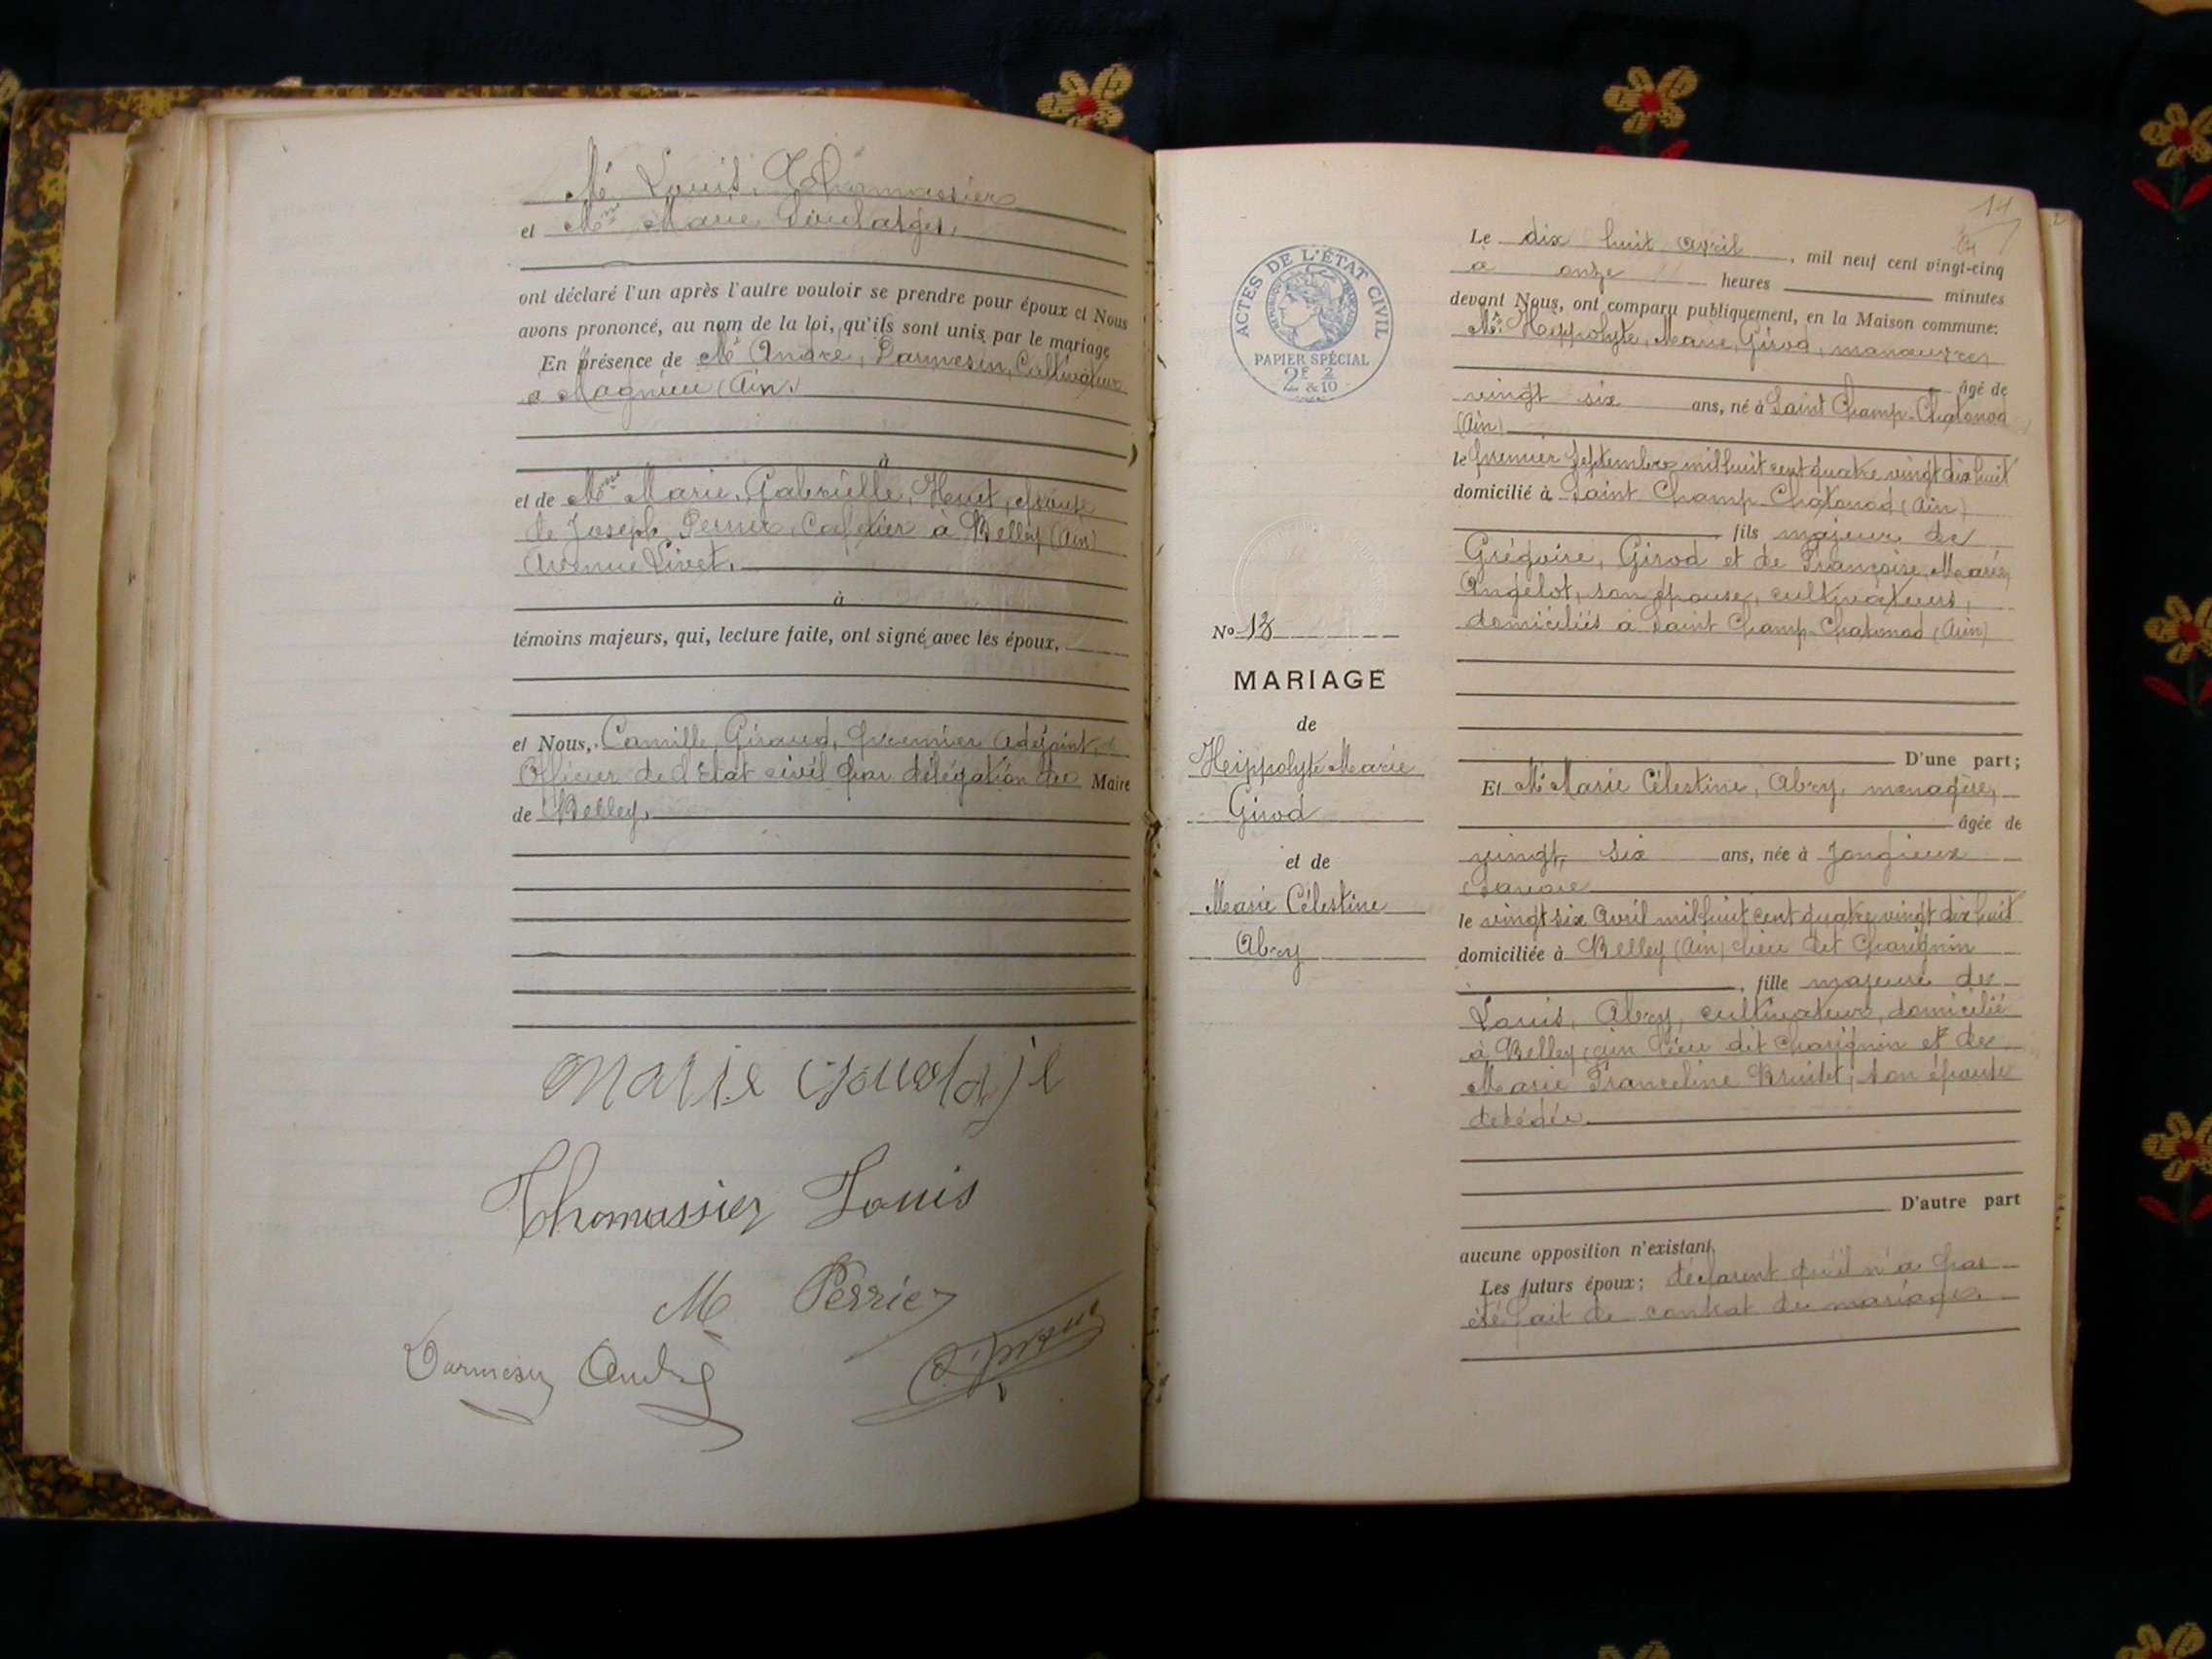 Mr Louis, Thomassier
et Mme Marie
ont déclaré l'un après l'autre vouloir se prendre pour époux et Nous
avons prononcé, au nom de la loi, qu'ils sont unis par le mariage
En présence de Mr André, Darmesin, Cultivateur
à Magnieu (Ain)
à
et de Mme Marie, Gabrielle, Huet, épouse
de Joseph Perrier, Cafetier à Belley (Ain)
Avenue Livet.
à
témoins majeurs, qui, lecture faite, ont signé avec les époux,
et Nous, Camille Giraud, premier Adjoint,
Officier de l'Etat civil par délégation du Maire
de Belley.
Marie
Thomassier Louis
M Perrier
Darmesin André
14
Le dix huit avril, mil neuf cent vingt-cinq
à onze heures minutes
devant Nous, ont comparu publiquement, en la Maison commune:
Mr Hippolyte, Marie, Girod, manœuvre,
âgé de
vingt six ans, né à Saint Champ-Chatonod
(Ain)
le premier Septembre mil huit cent quatre vingt dix huit
domicilié à Saint Champ-Chatonod (Ain)
fils majeur de
Grégoire, Girod et de Françoise, Marie,
Angelot, son épouse, cultivateurs,
domiciliés à Saint Champ-Chatonod (Ain)
D'une part;
Et Mlle Marie Célestine, Abry, menagère,
âgée de
vingt six ans, née à Jongieux
(Savoie
le vingt six Avril mil huit cent quatre vingt dix huit
domiciliée à Belley (Ain) lieu dit Charignin
, fille majeure de
Louis, Abry, cultivateur, domicilié
à Belley (Ain lieu dit Charignin et de
Marie Franceline son épouse
décédée.
D'autre part
aucune opposition n'existant.
Les futurs époux; déclarent qu'il n'a pas
été fait de contrat de mariage.
ACTES DE L'ÉTAT CIVIL
RÉPUBLIQUE FRANÇAISE
PAPIER SPÉCIAL
2F 2
&10
No 13
MARIAGE
de
Hippolyte Marie
Girod
et de
Marie Célestine
Abry